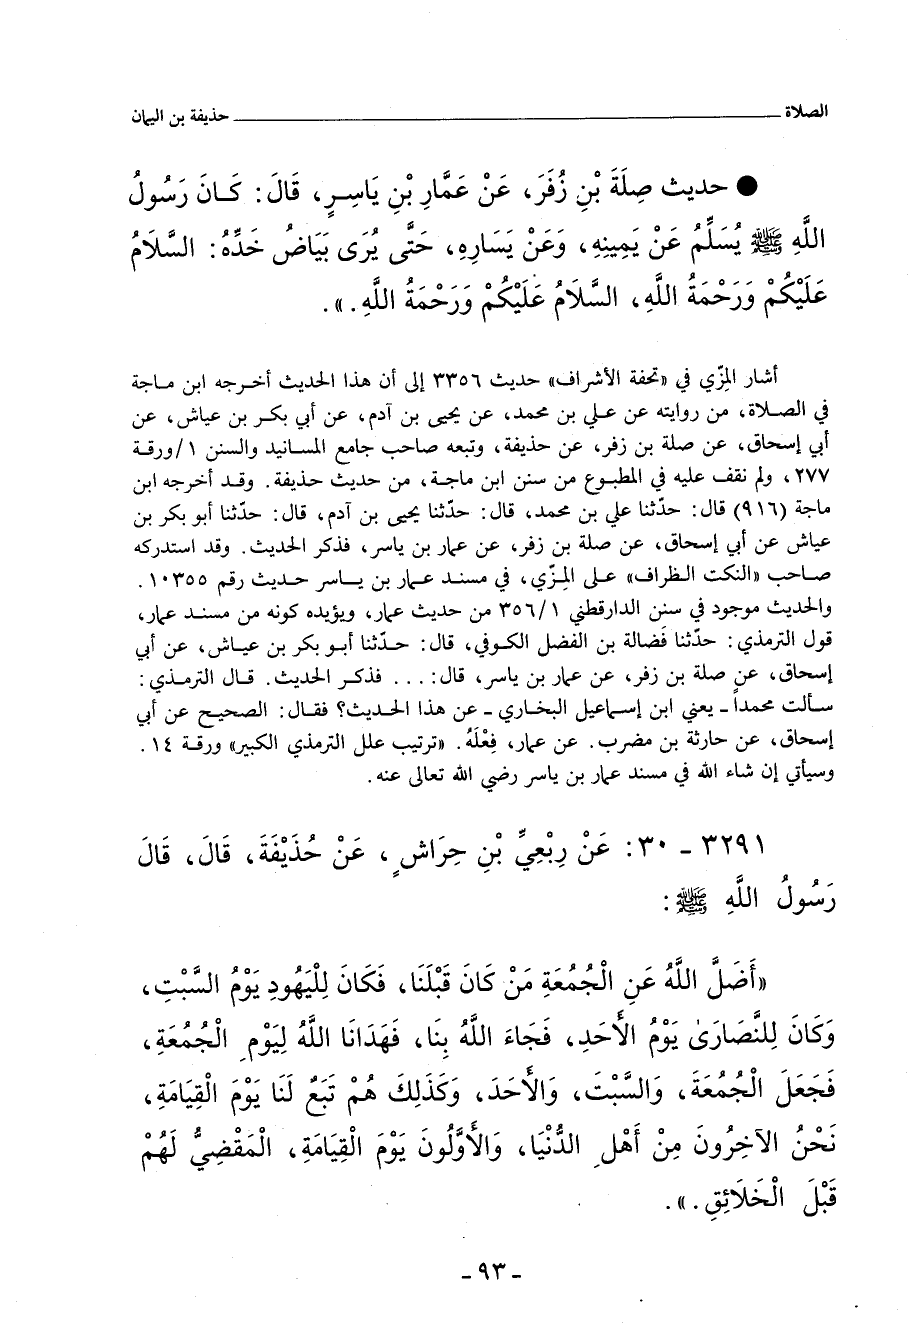 الصلاة ـــــــــــــــــــــــــــــــــــــــــــــ حذيفة بن اليمان
● حديث صِلَةَ بْنِ زُفَرَ، عَنْ عَمَّارِ بْنِ يَاسِرٍ، قَالَ: كَانَ رَسُولُ
اللَّهِ ﷺ يُسَلِّمُ عَنْ يَمِينِهِ، وَعَنْ يَسَارِهِ، حَتَّى يُرَى بَيَاضُ خَدِّهِ: السَّلَامُ
عَلَيْكُمْ وَرَحْمَةُ اللَّهِ، السَّلَامُ عَلَيْكُمْ وَرَحْمَةُ اللَّهِ.».
أشار المِزّي في «تحفة الأشراف» حديث ٣٣٥٦ إلى أن هذا الحديث أخرجه ابن ماجة
في الصلاة، من روايته عن علي بن محمد، عن يحيى بن آدم، عن أبي بكر بن عياش، عن
أبي إسحاق، عن صلة بن زفر، عن حذيفة، وتبعه صاحب جامع المسانيد والسنن ١/ورقة
٢٧٧، ولم نقف عليه في المطبوع من سنن ابن ماجة، من حديث حذيفة. وقد أخرجه ابن
ماجة (٩١٦) قال: حدّثنا علي بن محمد، قال: حدّثنا يحيى بن آدم، قال: حدّثنا أبو بكر بن
عياش عن أبي إسحاق، عن صلة بن زفر، عن عمار بن ياسر، فذكر الحديث. وقد استدركه
صاحب «النكت الظراف» على المِزّي، في مسند عمار بن ياسر حديث رقم ١٠٣٥٥.
والحديث موجود في سنن الدارقطني ٣٥٦/١ من حديث عمار، ويؤيده كونه من مسند عمار،
قول الترمذي: حدّثنا فَضالة بن الفضل الكوفي، قال: حدّثنا أبو بكر بن عياش، عن أبي
إسحاق، عن صلة بن زفر، عن عمار بن ياسر، قال: ... فذكر الحديث. قال الترمذي:
سألت محمداً ـ يعني ابن إسماعيل البخاري ـ عن هذا الحديث؟ فقال: الصحيح عن أبي
إسحاق، عن حارثة بن مضرب. عن عمار، فِعْلَهُ. «ترتيب علل الترمذي الكبير» ورقة ١٤.
وسيأتي إن شاء الله في مسند عمار بن ياسر رضي الله تعالى عنه.
٣٢٩١ ـ ٣٠: عَنْ رِبْعِيِّ بْنِ حِرَاشٍ، عَنْ حُذَيْفَةَ، قَالَ، قَالَ
رَسُولُ اللَّهِ ﷺ:
«أَضَلَّ اللَّهُ عَنِ الْجُمُعَةِ مَنْ كَانَ قَبْلَنَا، فَكَانَ لِلْيَهُودِ يَوْمُ السَّبْتِ،
وَكَانَ لِلنَّصَارَىٰ يَوْمُ الأَحَدِ، فَجَاءَ اللَّهُ بِنَا، فَهَدَانَا اللَّهُ لِيَوْمِ الْجُمُعَةِ،
فَجَعَلَ الْجُمُعَةَ، وَالسَّبْتَ، وَالأَحَدَ، وَكَذَلِكَ هُمْ تَبَعٌ لَنَا يَوْمَ الْقِيَامَةِ،
نَحْنُ الآخِرُونَ مِنْ أَهْلِ الدُّنْيَا، وَالأَوَّلُونَ يَوْمَ الْقِيَامَةِ، الْمَقْضِيُّ لَهُمْ
قَبْلَ الْخَلَائِقِ.».
ـ ٩٣ ـ